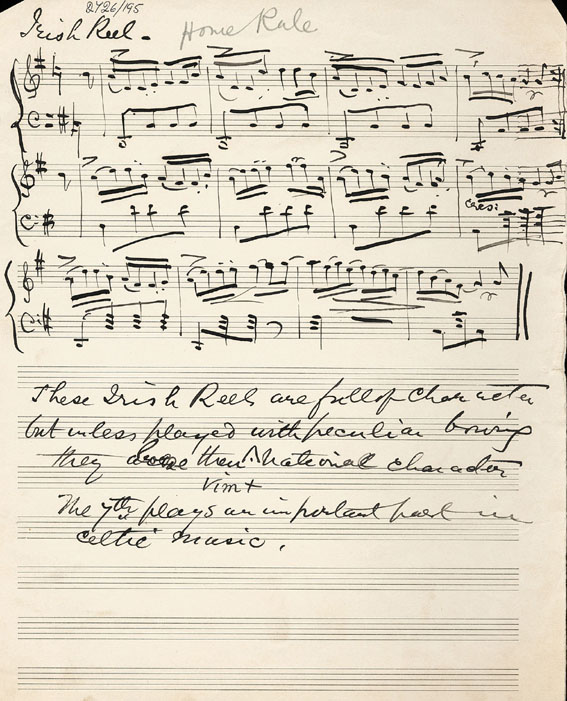 QY26/195
Irish Reel - Home Rule
cres:
These Irish Reels are full of character
but unless played with peculiar bowing
they loose their ^ National character
Vim +
The 7th plays an important part in
celtic music.